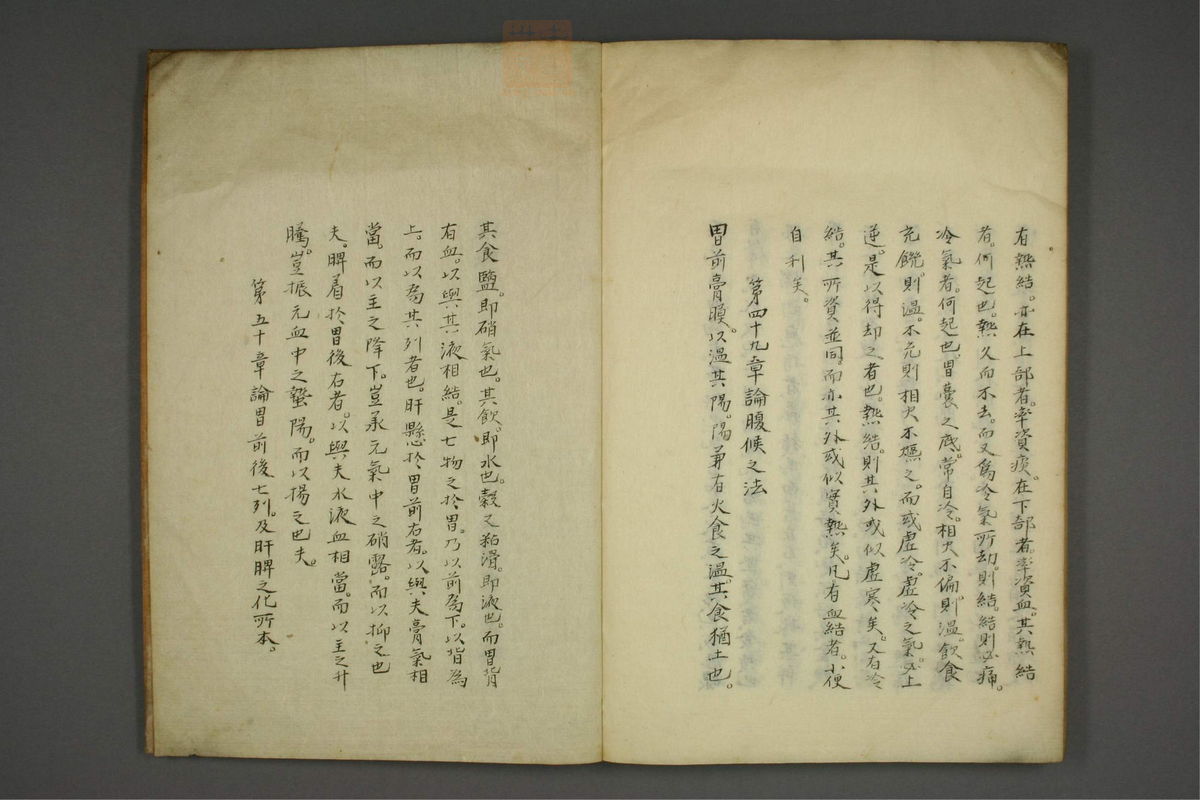 有熱結。亦在上部者。率資痰。在下部者。率資血。其熱結
者。何起也。熱久而不去。而又為冷氣所劫。則結。結則必痛。
冷氣者。何起也。胃囊之底。常自冷。相火不偏。則溫。飲食
充饒。則溫。不充則相火不驅之。而或虛冷虛冷之氣。必上
逆。是以得却之者也。熱結。則其外或似虛寒矣。又有冷
結。其所資並同。而亦其外或似實熱矣。凡有血結者。小便
自利矣。
第四十九章論腹候之法
胃前膏膜。以溫其陽。陽兼有火食之溫。其食猶土也。
其食鹽。即硝氣也。其飲。即水也。穀之粘滑。即液也。而胃背
有血。以與其液相結。是七物之於胃。乃以前為下。以背為
上。而以為其列者也。肝懸於胃前右者。以與夫膏氣相
當。而以主之降下。豈承元氣中之硝露。而以抑之也
夫。脾着於胃後右者。以與夫水液血相當。而以主之升
騰。豈振元血中之蠻陽。而以揚之也夫。
第五十章論胃前後七列。及肝脾之化所本。